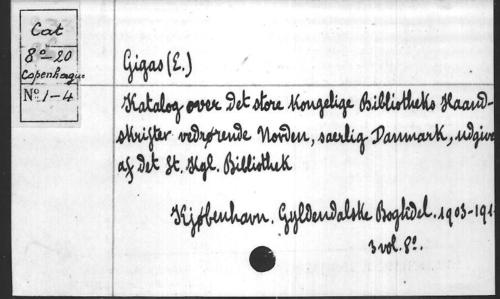 Cat
8º-20
Copenhague
Nº 1-4
Gigas (E.)
Katalog over Det store Kongelige Bibliotheks Haand-
skrifter vedrørende Norden, saerlig Danmark, udgive
af Det St. Kgl. Bibliothek
Kjøbenhavn. Gyldendalske Boghdel. 1903-191
3 vol. 8º.